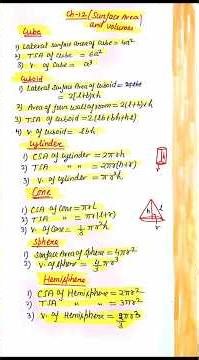 Ch-12 (Surface Area
and volumes
Cube
1) Lateral surface area of cube = 4a²
2) TSA of cube = 6a²
3) V. of Cube = a³
Cuboid
1) Lateral surface Area of cuboid =
= 2(l+b)xh
2) Area of four wall of room = 2(l+b)xh
3) TSA of cuboid = 2(lb+bh+hl)
4) V. of cuboid = lbh
Cylinder
1) CSA of Cylinder = 2πrh
2) TSA " " = 2πr(h+r)
3) V. of cylinder = πr²h
Cone
1) CSA of Cone = πrl
2) TSA " " = πr(l+r)
3) V. of Cone = 1/3 πr²h
h
l
r
Sphere
1) Surface Area of Sphere = 4πr²
2) V. of Sphere = 4/3 πr³
Hemisphere
1) CSA of Hemisphere = 2πr²
2) TSA " " = 3πr²
3) V. of Hemisphere = 2/3 πr³